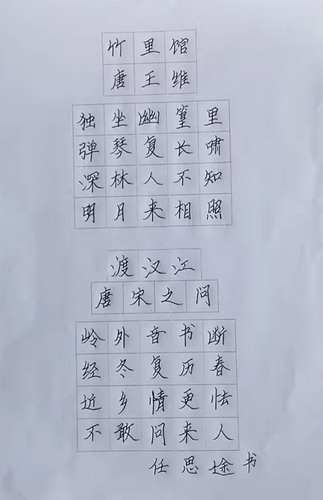 竹里馆
唐王维
独坐幽篁里
弹琴复长啸
深林人不知
明月来相照
渡汉江
唐宋之问
岭外音书断
经冬复历春
近乡情更怯
不敢问来人
任思途书